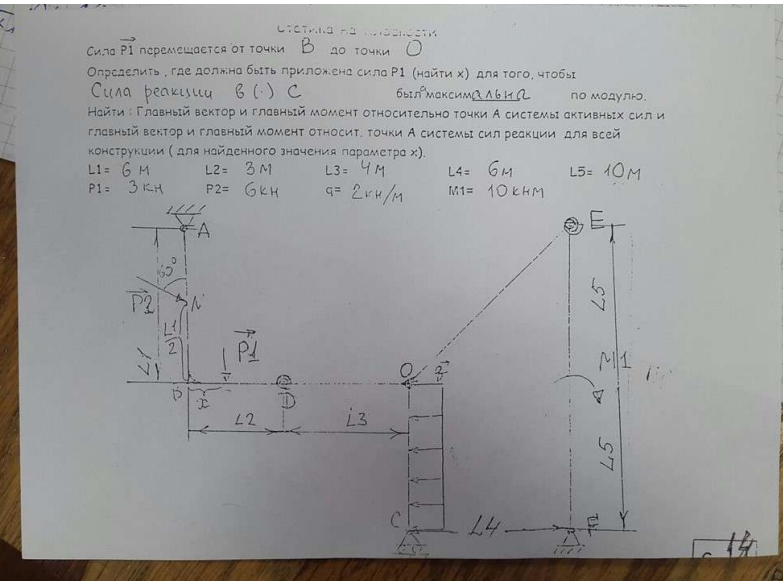 Статика на плоскости
Сила P1 перемещается от точки B до точки O
Определить , где должна быть приложена сила P1 (найти x) для того, чтобы
Сила реакции в (·) С был максимальна по модулю.
Найти : Главный вектор и главный момент относительно точки А системы активных сил и
главный вектор и главный момент относит. точки А системы сил реакции для всей
конструкции ( для найденного значения параметра x).
L1= 6 м L2= 3 м L3= 4 м L4= 6 м L5= 10 м
P1= 3 кн P2= 6 кн q= 2 кн/м M1= 10 кнм
A
E
60°
P2
N
L5
L1
L1/2
P1
O
q
M1
x
D
L2
L3
L5
C
L4
F
14